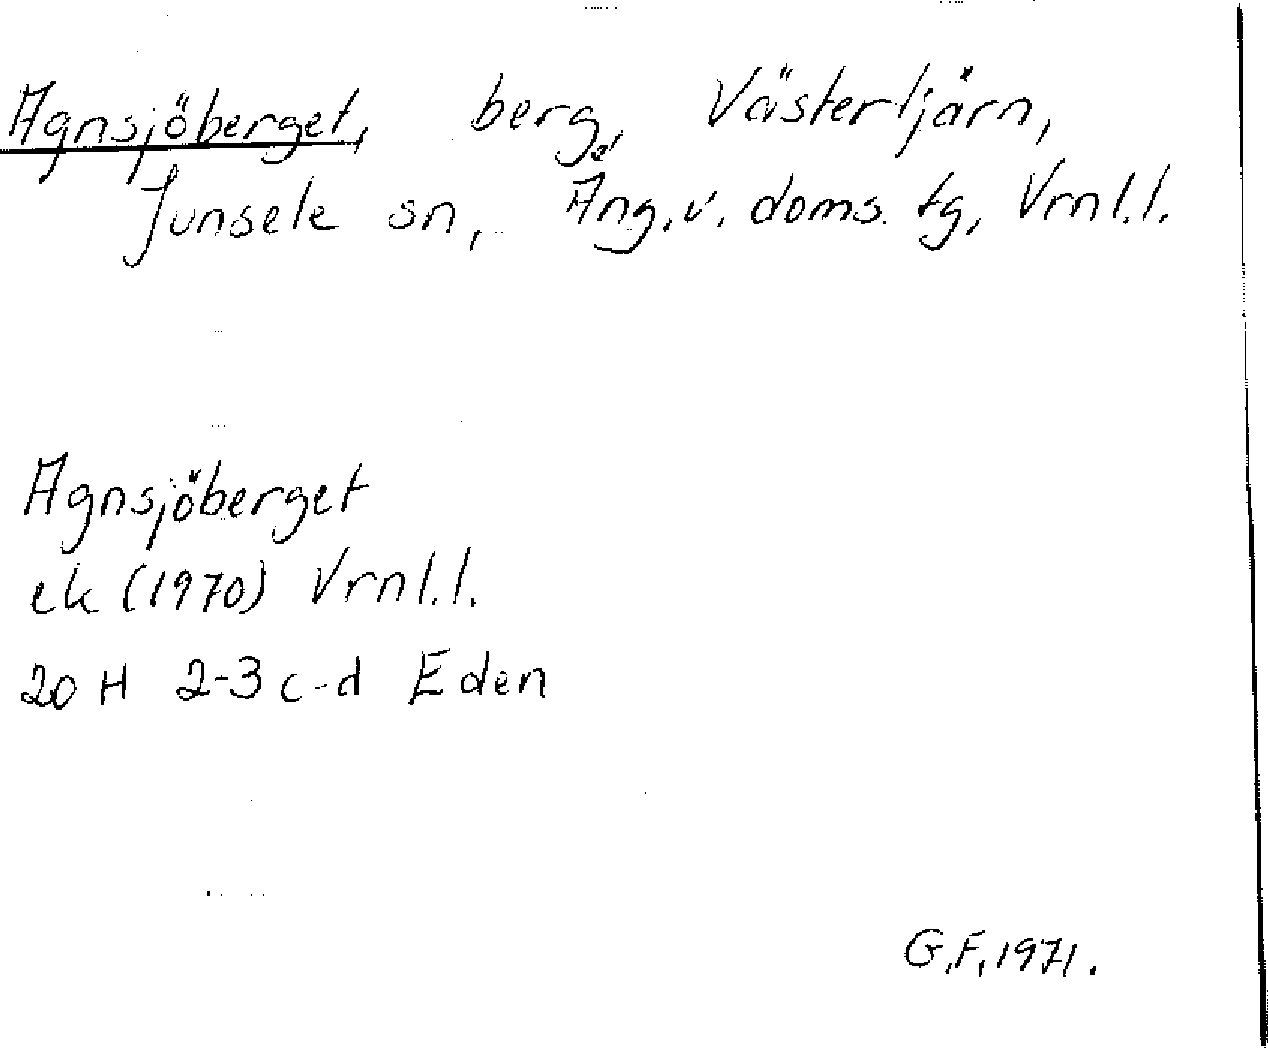 Agnsjöberget, berg, Västertjärn,
Junsele sn, Ång.v. doms. tg, Vrnl.l.
Agnsjöberget
ek (1970) Vrnl.l.
20 H 2-3 c-d Eden
G.F. 1971.